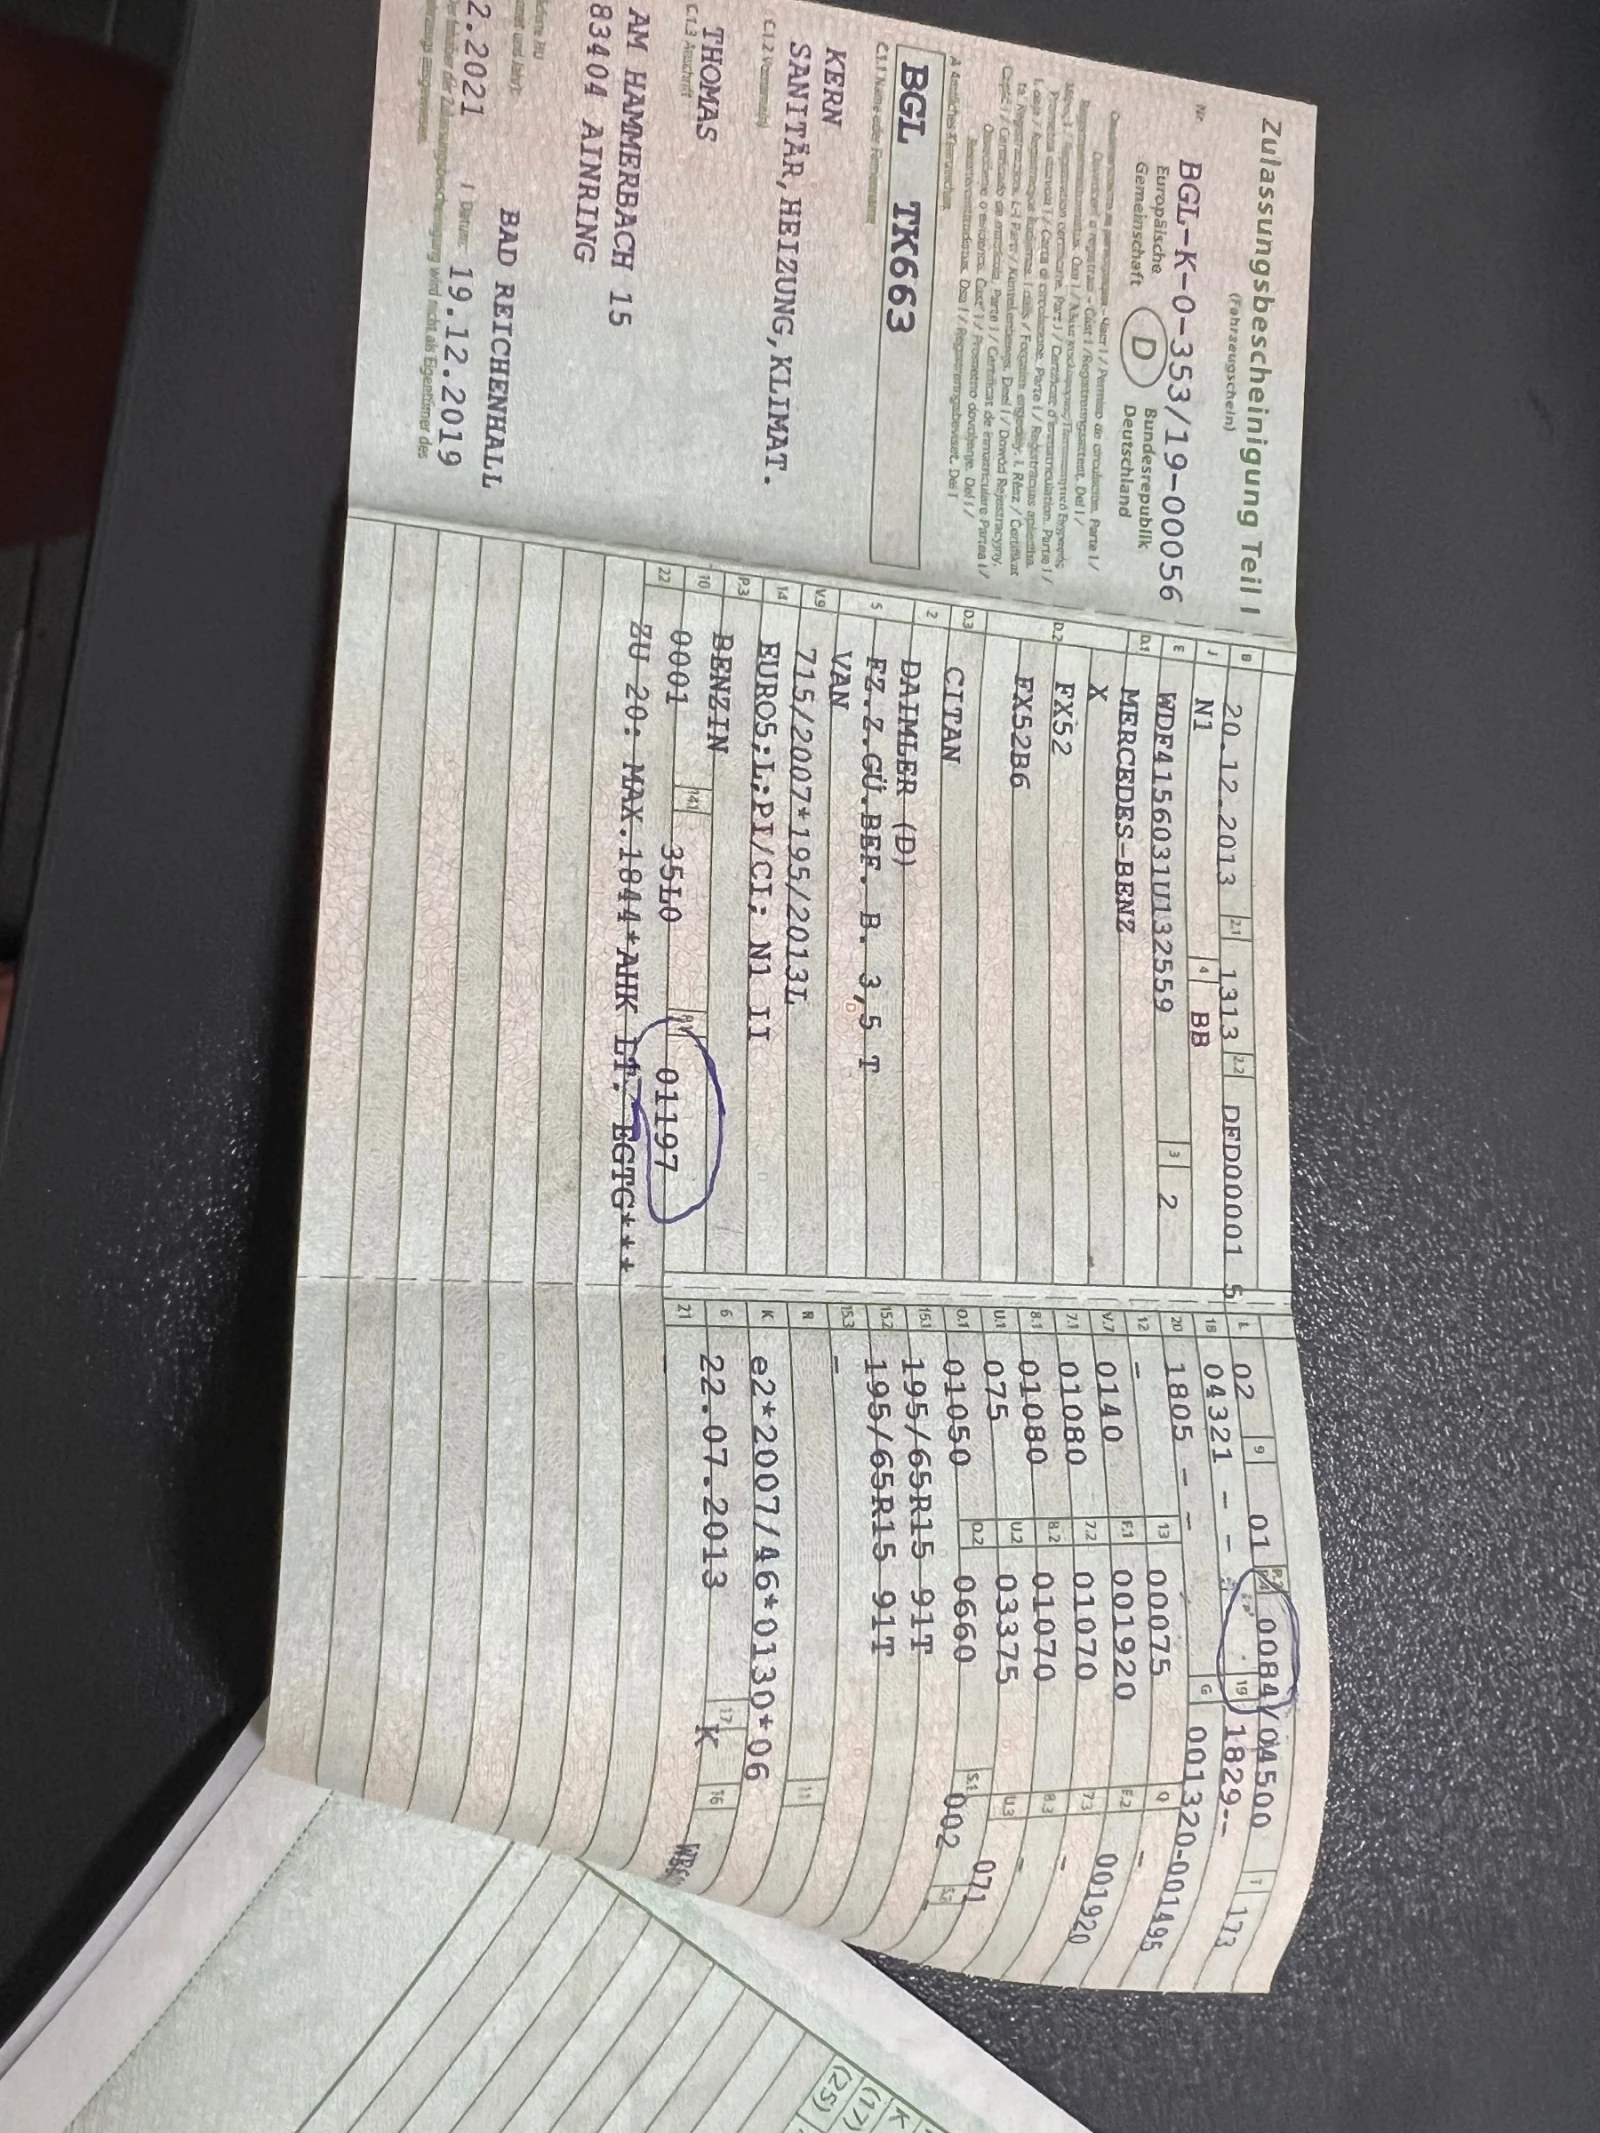 Zulassungsbescheinigung Teil I
(Fahrzeugschein)
Nr. BGL-K-0-353/19-00056
Europäische Gemeinschaft
D
Bundesrepublik Deutschland
A Amtliches Kennzeichen
BGL TK663
C.1.1 Name oder Firmenname
KERN
SANITÄR,HEIZUNG,KLIMAT.
C.1.2 Vorname(n)
THOMAS
C.1.3 Anschrift
AM HAMMERBACH 15
83404 AINRING
BAD REICHENHALL
2.2021
Datum: 19.12.2019
B 20.12.2013 2.1 1313 2.2 DFD00001 5
J N1 4 BB
E WDF4156031U132559 3 2
D.1 MERCEDES-BENZ
D.2 X
FX52
FX52B6
D.3 CITAN
2 DAIMLER (D)
5 FZ.Z.GÜ.BEF. B. 3,5 T
VAN
V.9 715/2007*195/2013L
14 EURO5;L;PI/CI; N1 II
P.3 BENZIN
10 0001 14.1 35L0 P.1 01197
22 ZU 20: MAX.1844*AHK LT. EGTG***
L 02 9 01 0084/04500 T 173
18 04321 - - 19 1829--
20 1805 - - G 001320-001495
12 - 13 00075 Q -
V.7 0140 F.1 001920 F.2 001920
7.1 01080 7.2 01070 7.3 -
8.1 01080 8.2 01070 8.3 -
U.1 075 U.2 03375 U.3 071
O.1 01050 O.2 0660 S.1 002 S.2
15.1 195/65R15 91T
15.2 195/65R15 91T
15.3 -
R 11
K e2*2007/46*0130*06
6 22.07.2013 17 K 16
21 -
K
(17)
(25)